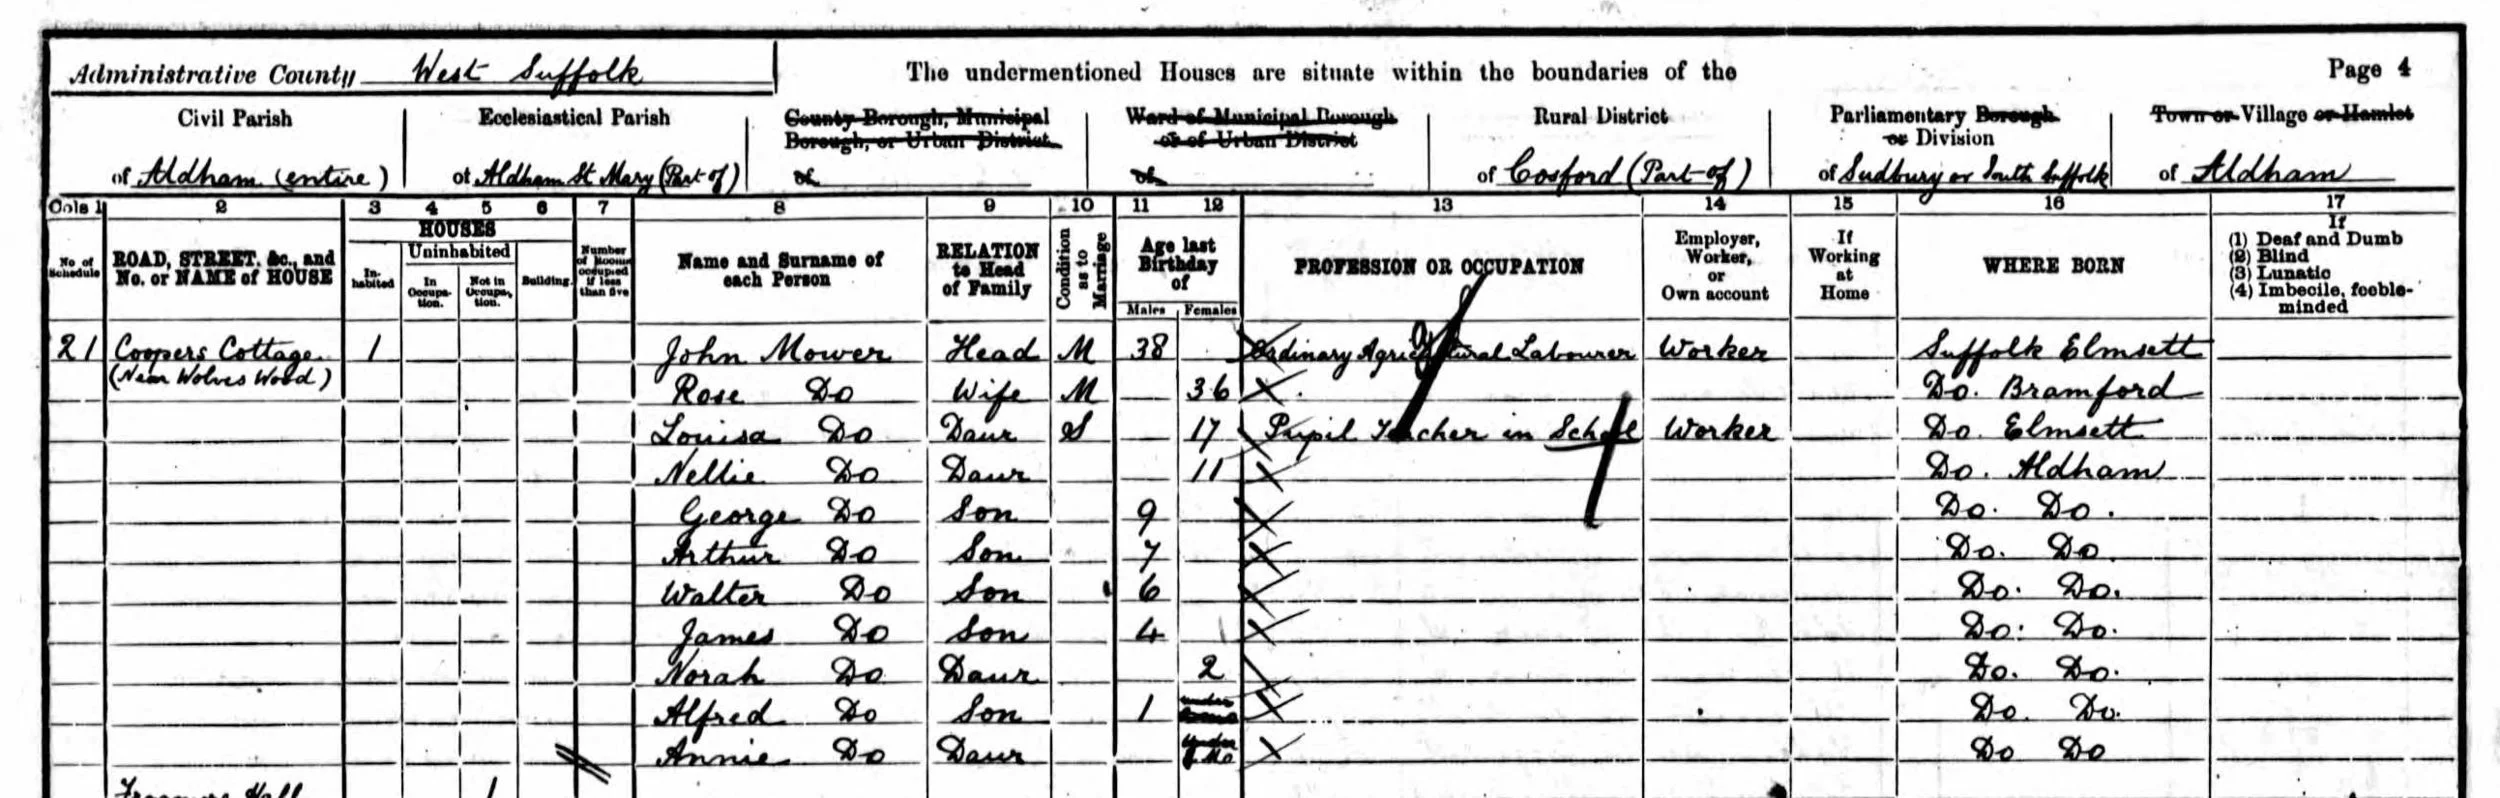 Administrative County West Suffolk The undermentioned Houses are situate within the boundaries of the Page 4
Civil Parish Ecclesiastical Parish County Borough, Municipal Borough, or Urban District Ward of Municipal Borough or of Urban District Rural District Parliamentary Borough or Division Town or Village or Hamlet
of Aldham (entire) of Aldham St Mary (Part of) of of of Cosford (Part of) of Sudbury or South Suffolk of Aldham
Cols 1 2 3 4 5 6 7 8 9 10 11 12 13 14 15 16 17
No of Schedule ROAD, STREET, &c., and No. or NAME of HOUSE HOUSES In-habited Uninhabited In Occupa-tion. Not in Occupa-tion. Building. Number of Rooms occupied if less than five Name and Surname of each Person RELATION to Head of Family Condition as to Marriage Age last Birthday of Males Females PROFESSION OR OCCUPATION Employer, Worker, or Own account If Working at Home WHERE BORN If (1) Deaf and Dumb (2) Blind (3) Lunatic (4) Imbecile, feeble-minded
21 Coopers Cottage 1 John Mower Head M 38 Ordinary Agricultural Labourer Worker Suffolk Elmsett
(Near Wolves Wood) Rose Do Wife M 36 Do. Bramford
Louisa Do Daur S 17 Pupil Teacher in School Worker Do. Elmsett
Nellie Do Daur 11 Do. Aldham
George Do Son 9 Do. Do.
Arthur Do Son 7 Do. Do
Walter Do Son 6 Do. Do.
James Do Son 4 Do. Do.
Norah Do Daur 2 Do. Do.
Alfred Do Son 1 under Do. Do.
Annie Do Daur under Mo Do Do
Hall 1